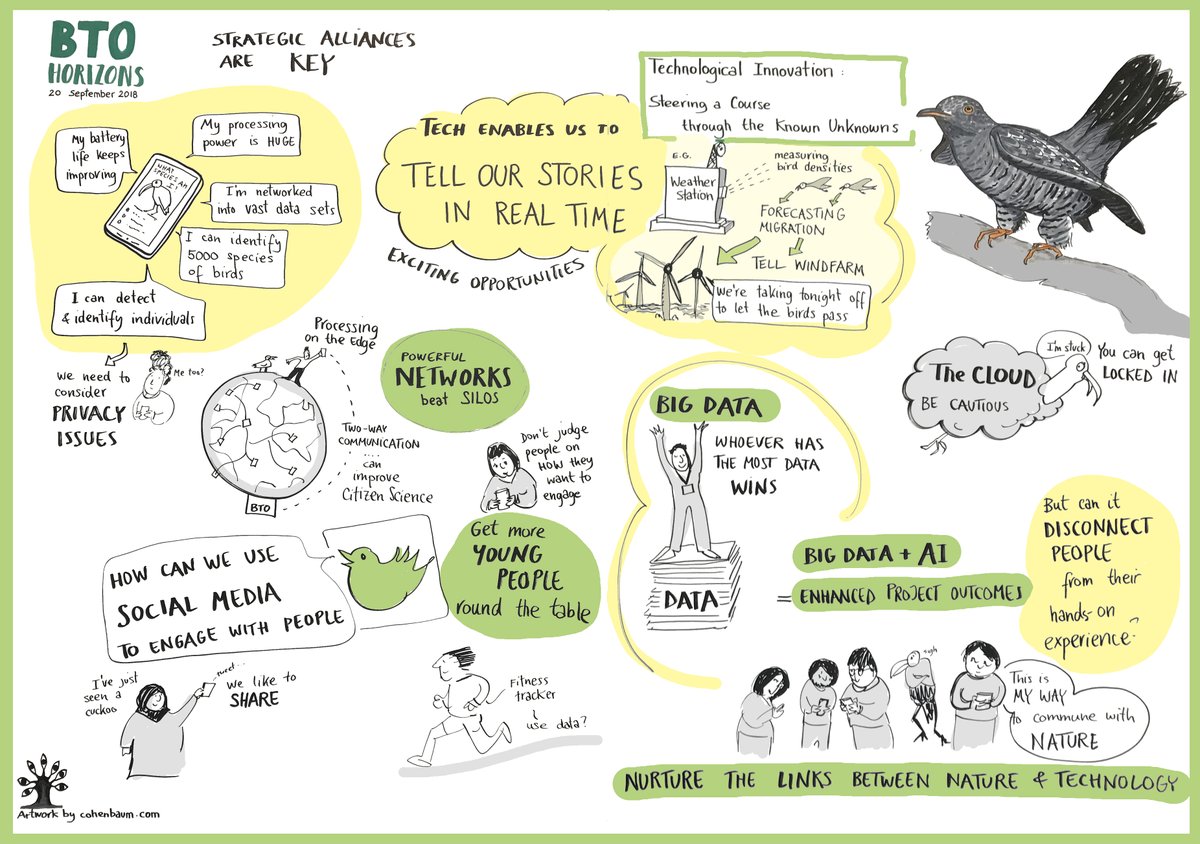 BTO
HORIZONS
20 September 2018
STRATEGIC ALLIANCES
ARE KEY
My battery
life keeps
improving
My processing
power is HUGE
WHAT
SPECIES AM
I
I'm networked
into vast data sets
I can identify
5000 species
of birds
I can detect
& identify individuals
we need to
consider
PRIVACY
ISSUES
Me too?
TECH ENABLES US TO
TELL OUR STORIES
IN REAL TIME
EXCITING OPPORTUNITIES
Technological Innovation :
Steering a Course
through the Known Unknowns
E.G.
Weather
Station
measuring
bird densities
FORECASTING
MIGRATION
TELL WINDFARM
We're taking tonight off
to let the birds pass
Processing
on the Edge
TWO-WAY
COMMUNICATION
....
can
improve
Citizen Science
BTO
POWERFUL
NETWORKS
beat SILOS
Don't judge
people on
HOW they
want to
engage
Get more
YOUNG
PEOPLE
round the table
HOW CAN WE USE
SOCIAL MEDIA
TO ENGAGE WITH PEOPLE
I've just
seen a
cuckoo
tweet...
we like to
SHARE
Fitness
tracker
use data?
The CLOUD
BE CAUTIOUS
I'm stuck
You can get
LOCKED IN
BIG DATA
WHOEVER HAS
THE MOST DATA
WINS
DATA
BIG DATA + AI
= ENHANCED PROJECT OUTCOMES
But can it
DISCONNECT
PEOPLE
from their
hands-on
experience
sigh
This is
MY WAY
to commune with
NATURE
NURTURE THE LINKS BETWEEN NATURE & TECHNOLOGY
Artwork by cohenbaum.com